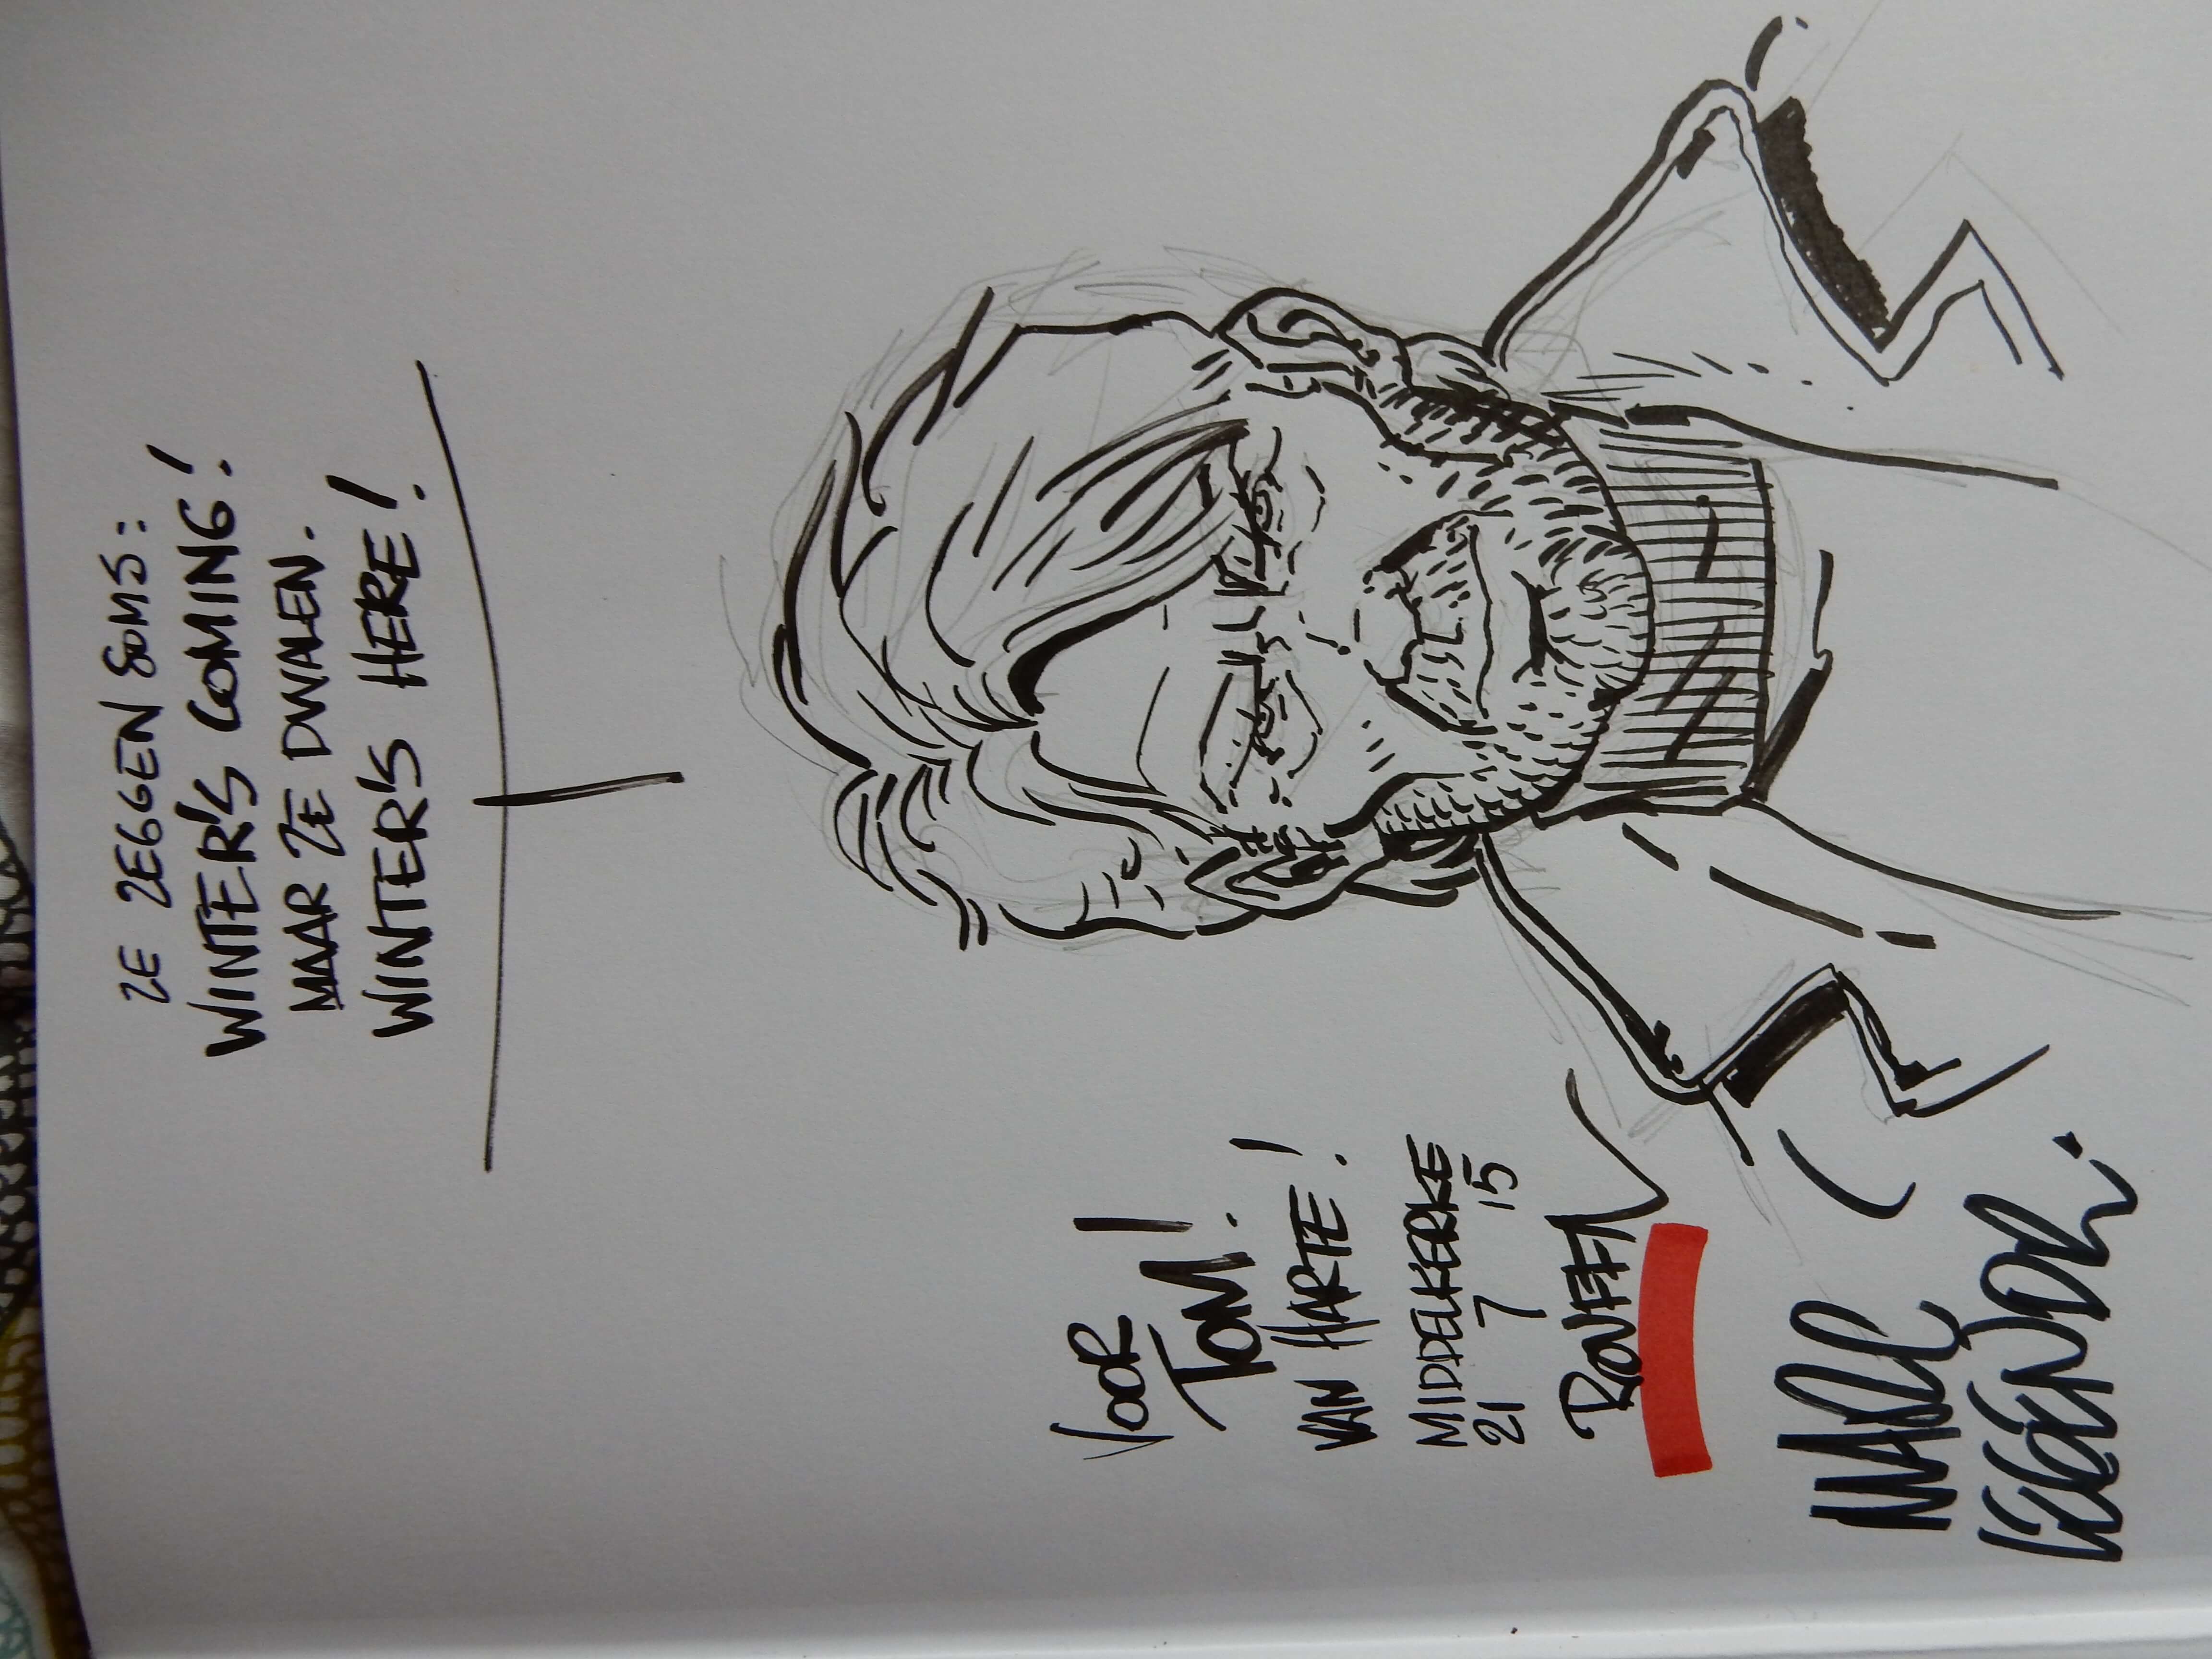 ZE ZEGGEN SOMS:
WINTER'S COMING!
MAAR ZE DWALEN.
WINTER'S HERE!
VOOR
TOM!
VAN HARTE!
MIDDELKERKE
21 7 15
MARC
LEGENDR.